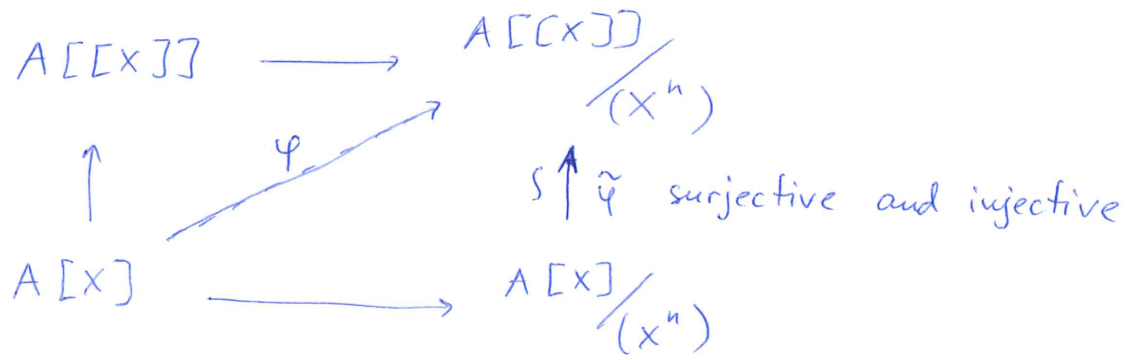 A[[X]] → A[[X]]/(X^n)
φ
∫ ↑ φ̃ surjective and injective
A[X] → A[X]/(X^n)